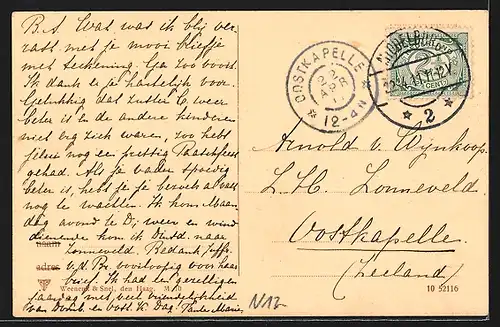 B. A. Wat was ik blij ver
rast met je mooi briefje
met teekening. Ga zoo voort.
Ik dank te je hartelijk voor.
Gelukkig dat zuster C. weer
beter is en de andere kinderen
niet erg ziek waren, zoo hebt
jelui nog een prettig Paaschfeest
gehad. Als je vader spoedig
beter is, hebt je je bezoek al vast
nog te wachten. Ik kom Maan
dag avond te D; weer en win
dienende kom ik naar
naam:
Zonneveld. Bedank
adres v. d. Br. voorloopig voor haar
brief. Ik had een gezelligen
met veel vriendelijkheid
van en Dag. Tante Marie
Weenenk & Snel, den Haag. M.
N13
OOSTKAPELLE
22
APR
12-4N
MIDDELBURG
22.4.11 11-12V
2
CENT
Arnold v. Wijnkoop
L. H. Zonneveld
Oostkapelle
(Zeeland)
10 52116